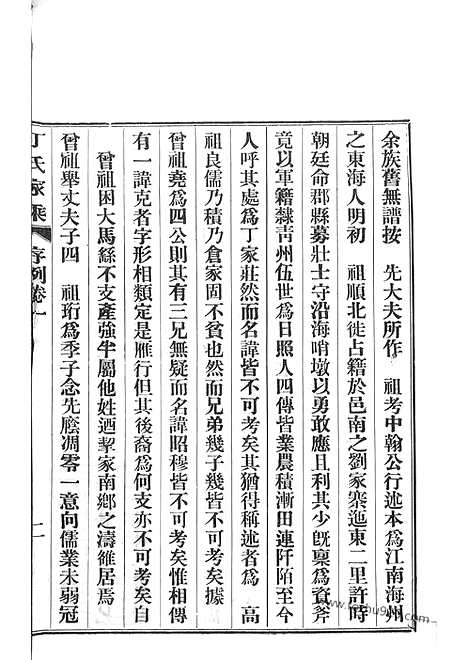 余族舊無譜按　先大夫所作　祖考中翰公行述本爲江南海州
之東海人明初　祖順北徙占籍於邑南之劉家寨迤東二里許時
朝廷命郡縣募壯士守沿海哨墩以勇敢應且利其少旣稟爲資斧
竟以軍籍隸靑州伍世爲日照人四傳皆業農積漸田連阡陌至今
人呼其處爲丁家莊然而名諱皆不可考矣其猶得稱述者爲　高
祖良儒乃積乃倉家固不貧也然而兄弟幾子幾皆不可考矣據
曾祖堯爲四公則其有三兄無疑而名諱昭穆皆不可考矣惟相傳
有一諱克者字形相類定是雁行但其後裔爲何支亦不可考矣自
曾祖困大馬繇不支產強半屬他姓迺挈家南鄉之濤雒居焉
曾祖舉丈夫子四　祖珩爲季子念先廕凋零一意向儒業未弱冠
丁氏家乘　序例卷一　二